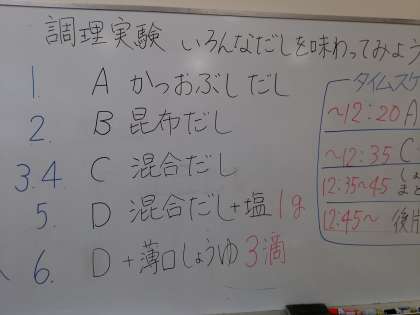 調理実験 いろんなだしを味わってみよう
1. A かつおぶしだし
2. B 昆布だし
3.4. C 混合だし
5. D 混合だし+塩1g
6. D+薄口しょうゆ3滴
タイムスケ
~12:20 A
~12:35 C
12:35~45 しょ
まと
12:45~ 後片